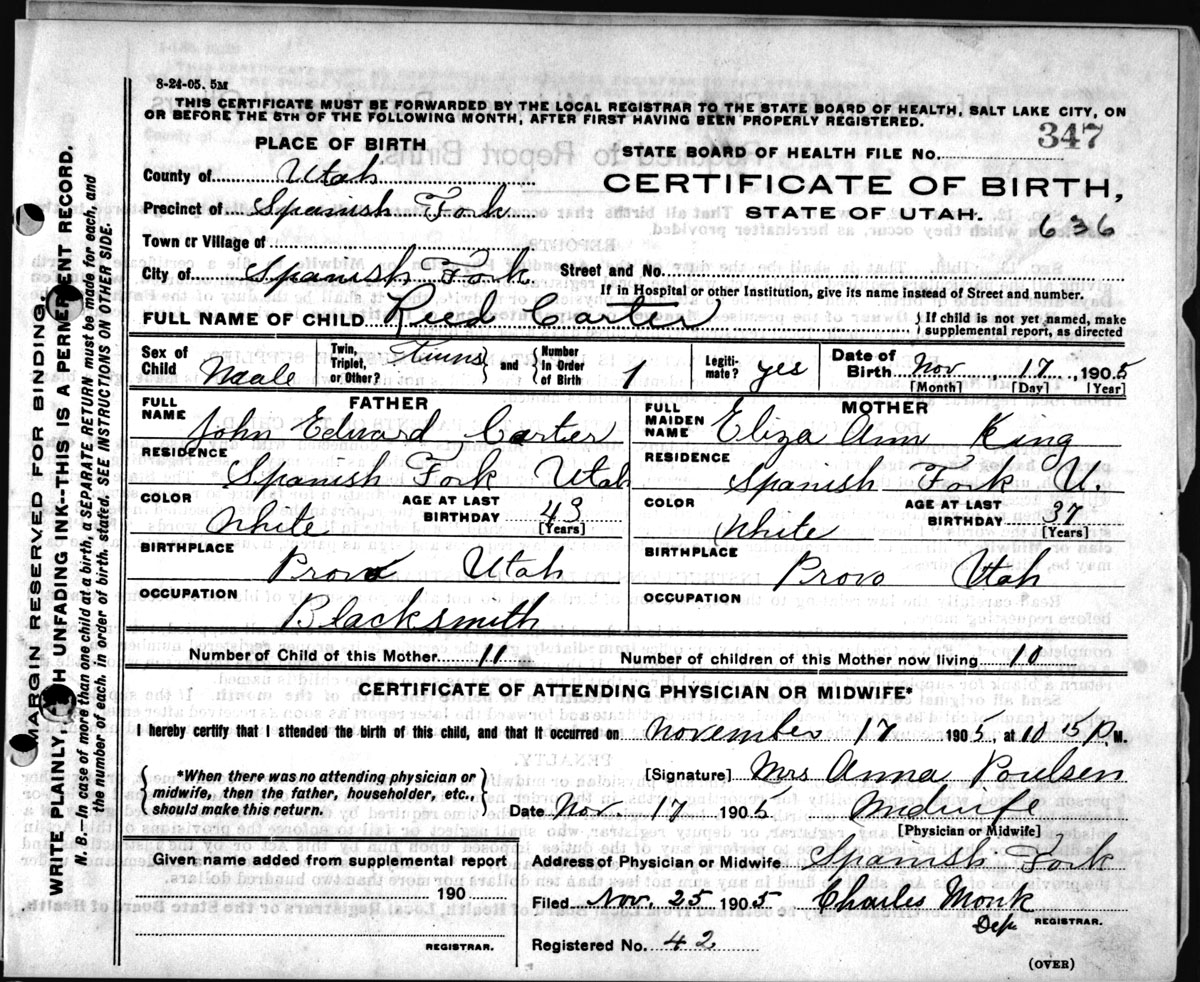 8-24-05. 5M
THIS CERTIFICATE MUST BE FORWARDED BY THE LOCAL REGISTRAR TO THE STATE BOARD OF HEALTH, SALT LAKE CITY, ON
OR BEFORE THE 5TH OF THE FOLLOWING MONTH, AFTER FIRST HAVING BEEN PROPERLY REGISTERED.
PLACE OF BIRTH
STATE BOARD OF HEALTH FILE No. 347
County of Utah
CERTIFICATE OF BIRTH,
Precinct of Spanish Fork
STATE OF UTAH. 636
Town or Village of
City of Spanish Fork Street and No.
If in Hospital or other Institution, give its name instead of Street and number.
FULL NAME OF CHILD Reed Carter } If child is not yet named, make supplemental report, as directed
Sex of Child Maale Twin, Triplet, or Other? twins } and { Number in Order of Birth 1 Legiti-mate? yes Date of Birth Nov 17, 1905
[Month] [Day] [Year]
FATHER
FULL NAME John Edward Carter
RESIDENCE Spanish Fork Utah
COLOR White AGE AT LAST BIRTHDAY 43 [Years]
BIRTHPLACE Provo Utah
OCCUPATION Blacksmith
MOTHER
FULL MAIDEN NAME Eliza Ann King
RESIDENCE Spanish Fork U.
COLOR White AGE AT LAST BIRTHDAY 37 [Years]
BIRTHPLACE Provo Utah
OCCUPATION
Number of Child of this Mother 11 Number of children of this Mother now living 10
CERTIFICATE OF ATTENDING PHYSICIAN OR MIDWIFE*
I hereby certify that I attended the birth of this child, and that it occurred on November 17 1905, at 10 15 P.M.
{ *When there was no attending physician or
midwife, then the father, householder, etc.,
should make this return. }
[Signature] Mrs Anna Poulsen
Date Nov. 17 1905 Midwife
[Physician or Midwife]
Given name added from supplemental report
190
REGISTRAR.
Address of Physician or Midwife Spanish Fork
Filed Nov. 25 1905 Charles Monk
Dep. REGISTRAR.
Registered No. 42
(OVER)
MARGIN RESERVED FOR BINDING
WRITE PLAINLY, WITH UNFADING INK--THIS IS A PERMENENT RECORD.
N. B.—In case of more than one child at a birth, a SEPARATE RETURN must be made for each, and
the number of each, in order of birth, stated. SEE INSTRUCTIONS ON OTHER SIDE.